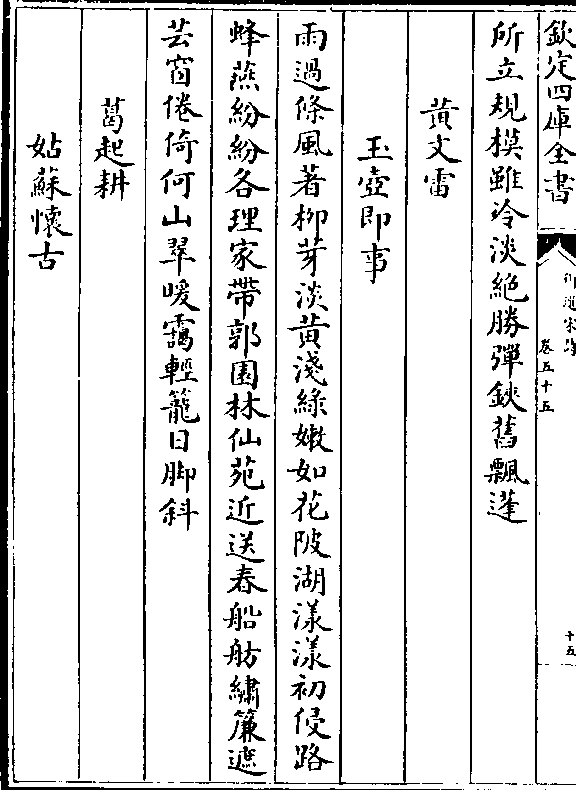 欽定四庫全書
御選宋詩
卷五十五
十五
所立規模雖冷淡絶勝彈鋏舊飄蓬
黄文雷
玉壺即事
雨過條風著栁芽淡黄淺綠嫩如花陂湖漾漾初侵路
蜂燕紛紛各理家帶郭園林仙苑近送春船舫繡簾遮
芸窗倦倚何山翠暖靄輕籠日脚斜
葛起耕
姑蘇懷古